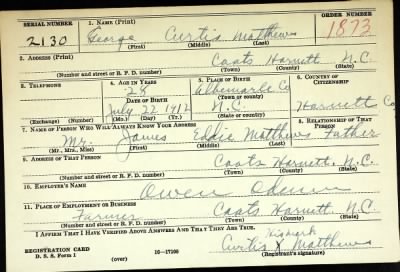 SERIAL NUMBER 1. NAME (Print) ORDER NUMBER
2130 George Curtis Matthews 1873
(First) (Middle) (Last)
2. ADDRESS (Print)
Coats Harnett N.C.
(Number and street or R. F. D. number) (Town) (County) (State)
3. TELEPHONE 4. AGE IN YEARS 5. PLACE OF BIRTH 6. COUNTRY OF CITIZENSHIP
28 Albemarle Co
DATE OF BIRTH (Town or county)
July 22 1912 N.C. Harnett Co
(Exchange) (Number) (Mo.) (Day) (Yr.) (State or country)
7. NAME OF PERSON WHO WILL ALWAYS KNOW YOUR ADDRESS 8. RELATIONSHIP OF THAT PERSON
Mr. James Eddie Matthews Father
(Mr., Mrs., Miss) (First) (Middle) (Last)
9. ADDRESS OF THAT PERSON
Coats Harnett, N.C.
(Number and street or R. F. D. number) (Town) (County) (State)
10. EMPLOYER'S NAME
Owen
11. PLACE OF EMPLOYMENT OR BUSINESS
Farmer Coats Harnett N.C.
(Number and street or R. F. D. number) (Town) (County) (State)
I AFFIRM THAT I HAVE VERIFIED ABOVE ANSWERS AND THAT THEY ARE TRUE.
His mark
REGISTRATION CARD Curtis X Matthews
D. S. S. Form 1 16-17105
(over) (Registrant's signature)